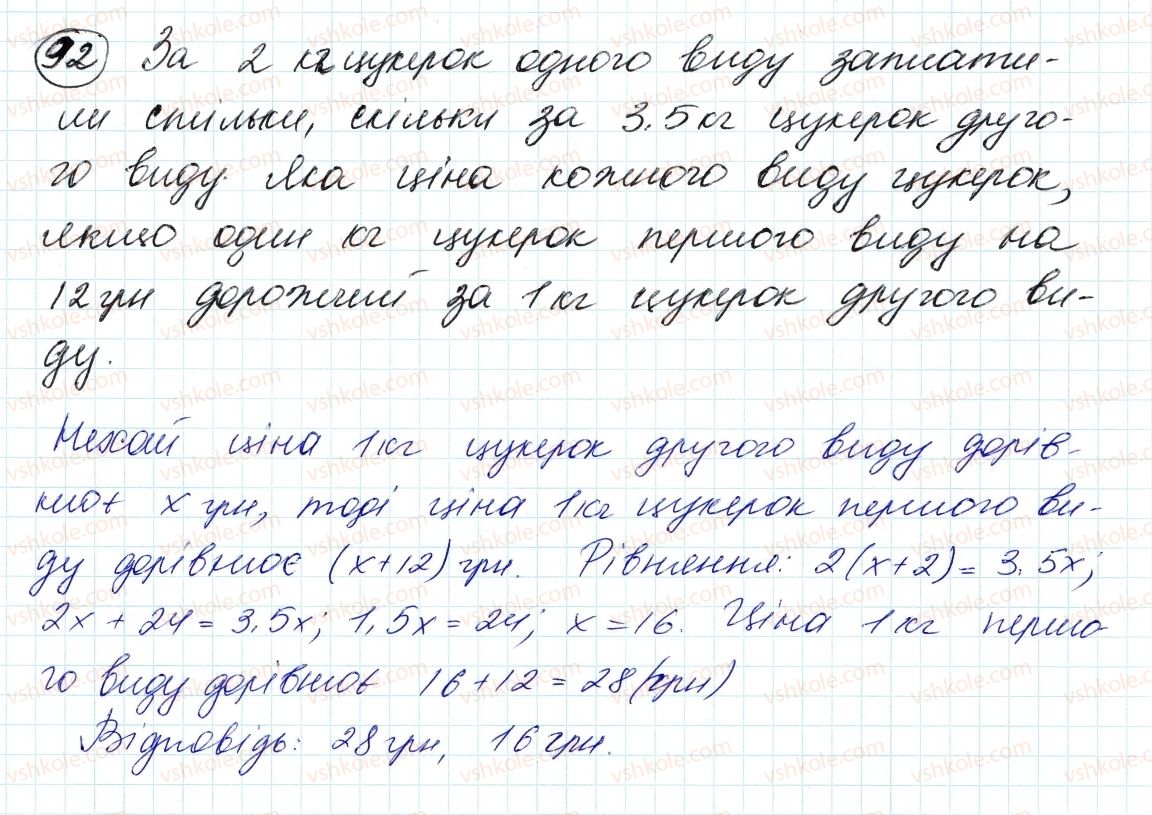 92 За 2 кг цукерок одного виду заплати-
ли стільки, скільки за 3,5 кг цукерок друго-
го виду. Яка ціна кожного виду цукерок,
якщо один кг цукерок першого виду на
12 грн дорожчий за 1 кг цукерок другого ви-
ду.
Нехай ціна 1 кг цукерок другого виду дорів-
нює x грн, тоді ціна 1 кг цукерок першого ви-
ду дорівнює (x+12) грн. Рівняння: 2(x+2) = 3,5x;
2x + 24 = 3,5x; 1,5x = 24; x = 16. Ціна 1 кг першо-
го виду дорівнює 16 + 12 = 28 (грн)
Відповідь: 28 грн, 16 грн.